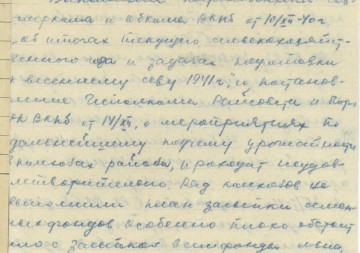 наркома и обкома ВКПб от 10/XII-40г
"об итогах текущего сельскохозяйст-
венного года и задачах подготовки
к весеннему севу 1941г", и постанов-
ление Исполкома Райсовета и
ВКПб от 14/XII, о мероприятиях по
дальнейшему под'ему урожайности
в колхозах района, проходит неудов-
летворительно. Ряд колхозов не
выполнили план засыпки семен-
ных фондов особенно плохо обстоит
дело с засыпкой семфонда льна,